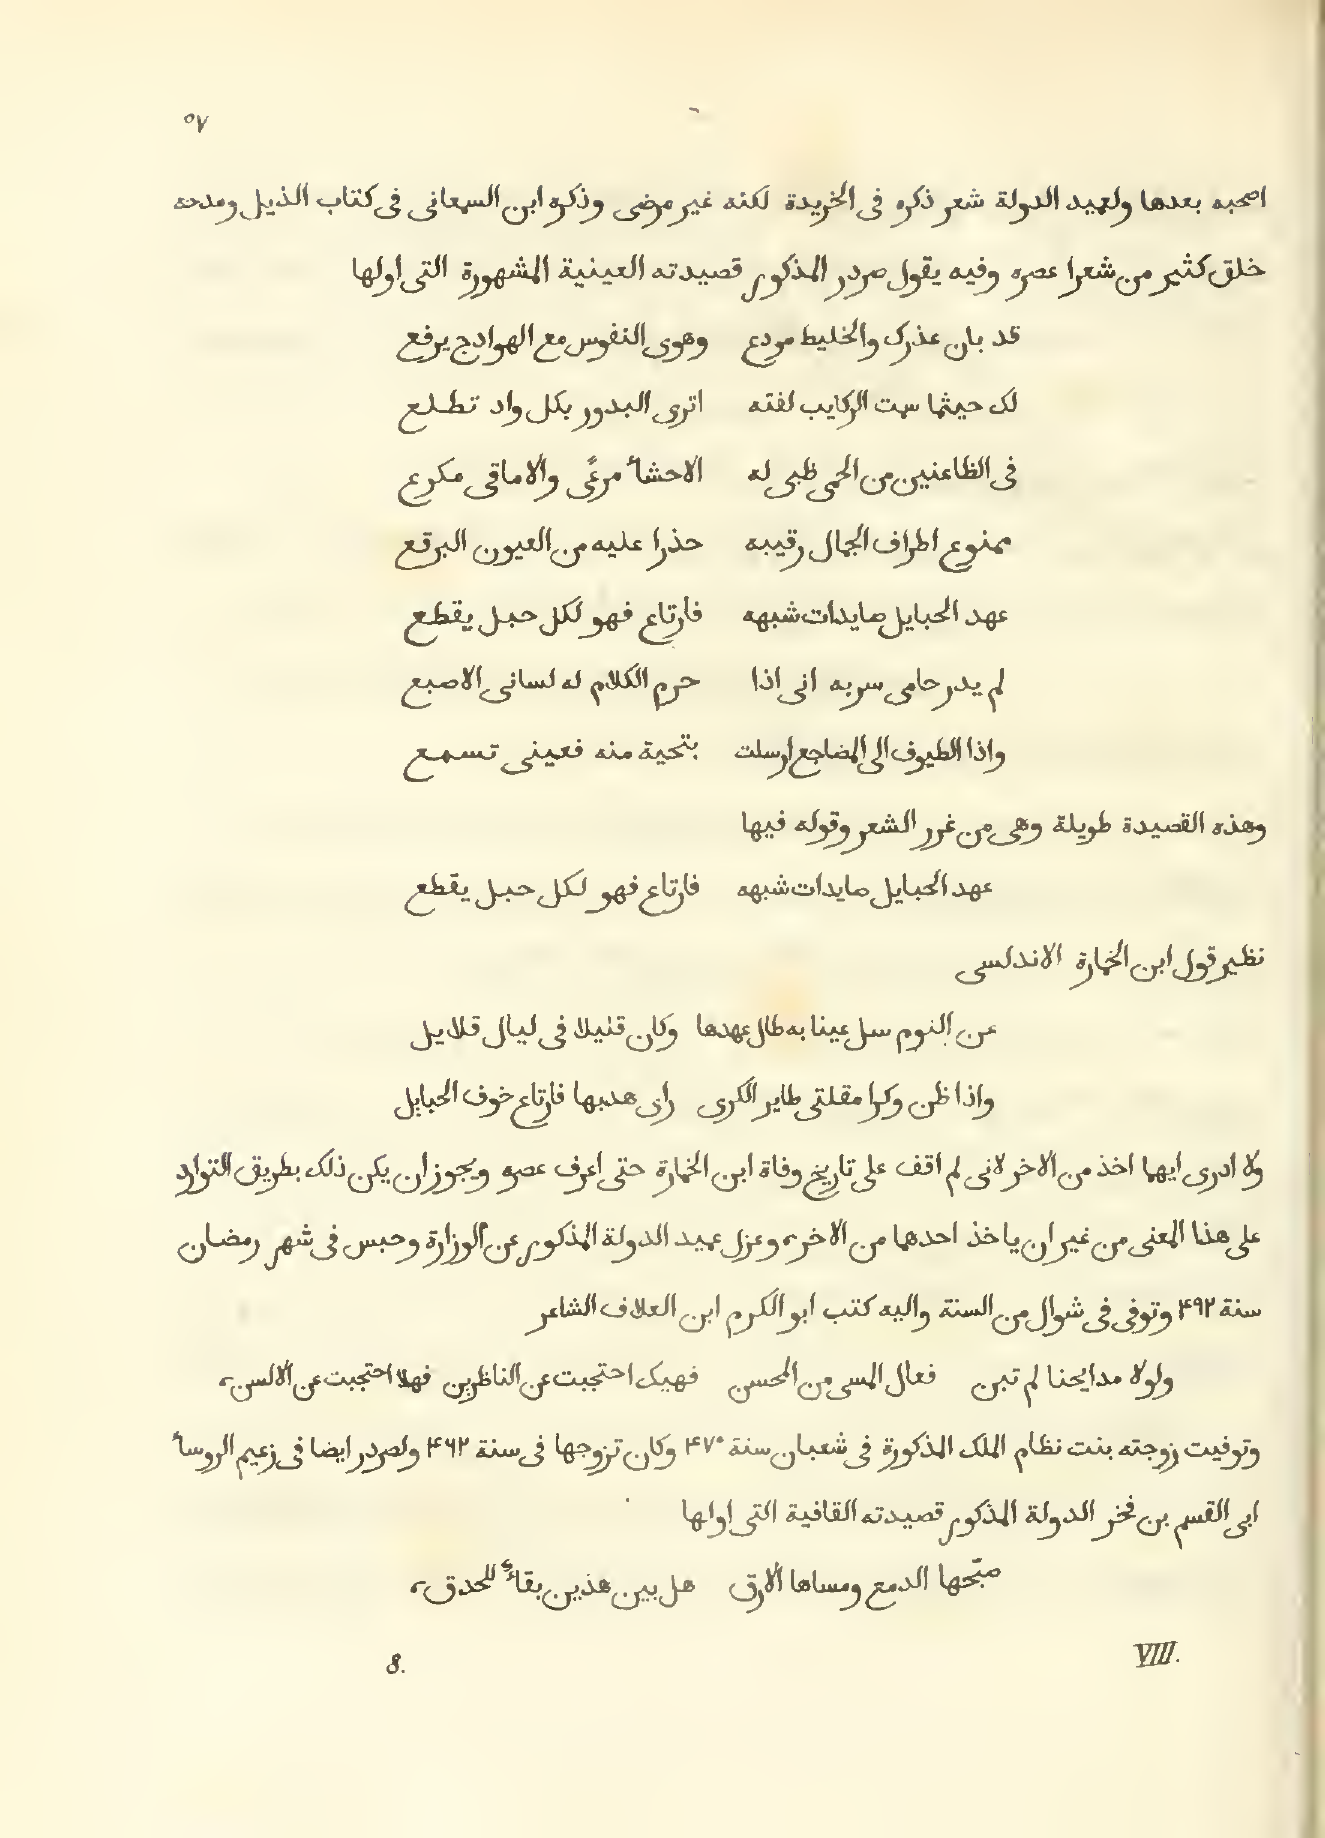 ٥٧
اصحبه بعدها ولعميد الدولة شعر ذكره فى الخريدة لكنه غير مرضى وذكره ابن السمعانى فى كتاب الذيل ومدحه
خلق كثير من شعرا عصره وفيه يقول صردر المذكور قصيدته العينية المشهورة التى اولها
قد بان عذرك والخليط مودع وهوى النفوس مع الهوادج يرفع
لك حيثما سمت الركايب لفته اترى البدور بكل واد تطلع
فى الظاعنين من الحمى ظبى له الاحشاء مرعًى والاماقى مكرع
ممنوع اطراف الجمال رقيبه حذرا عليه من العيون البرقع
عهد الحبايل صايدات شبهه فارتاع فهو لكل حبل يقطع
لم يدر حامى سربه انى اذا حرم الكلام له لسانى الاصبع
واذا الطيوف الى المضاجع ارسلت بتحية منه فعينى تسمع
وهذه القصيدة طويلة وهى من غرر الشعر وقوله فيها
عهد الحبايل صايدات شبهه فارتاع فهو لكل حبل يقطع
نظير قول ابن الخمارة الاندلسى
عن النوم سل عينا به طال عهدها وكان قليلا فى ليال قلايل
واذا ظن وكرا مقلتى طاير الكرى راى هدبها فارتاع خوف الحبايل
ولا ادرى ايهما اخذ من الاخر لانى لم اقف على تاريخ وفاة ابن الخمارة حتى اعرف عصره ويجوز ان يكن ذلك بطريق التوارد
على هذا المعنى من غير ان ياخذ احدهما من الاخر، وعزل عميد الدولة المذكور عن الوزارة وحبس فى شهر رمضان
سنة ۴۹۲ وتوفى فى شوال من السنة واليه كتب ابو الكرم ابن العلاف الشاعر
ولولا مدايحنا لم تبن فعال المسى من المحسن فهبك احتجبت عن الناظرين فهلا احتجبت عن الالسن،
وتوفيت زوجته بنت نظام الملك المذكورة فى شعبان سنة ۴۷۰ وكان تزوجها فى سنة ۴۶۲ ولصردر ايضا فى زعيم الروساء
ابى القسم بن فخر الدولة المذكور قصيدته القافية التى اولها
صبّحها الدمع ومساها الارق هل بين هذين بقاءٌ للحدق،
VIII. 8.